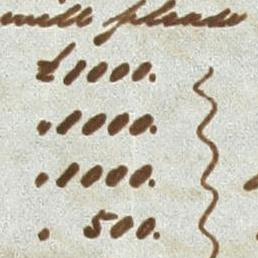 will please
£1000.
"1000.
"1000.
" 500.